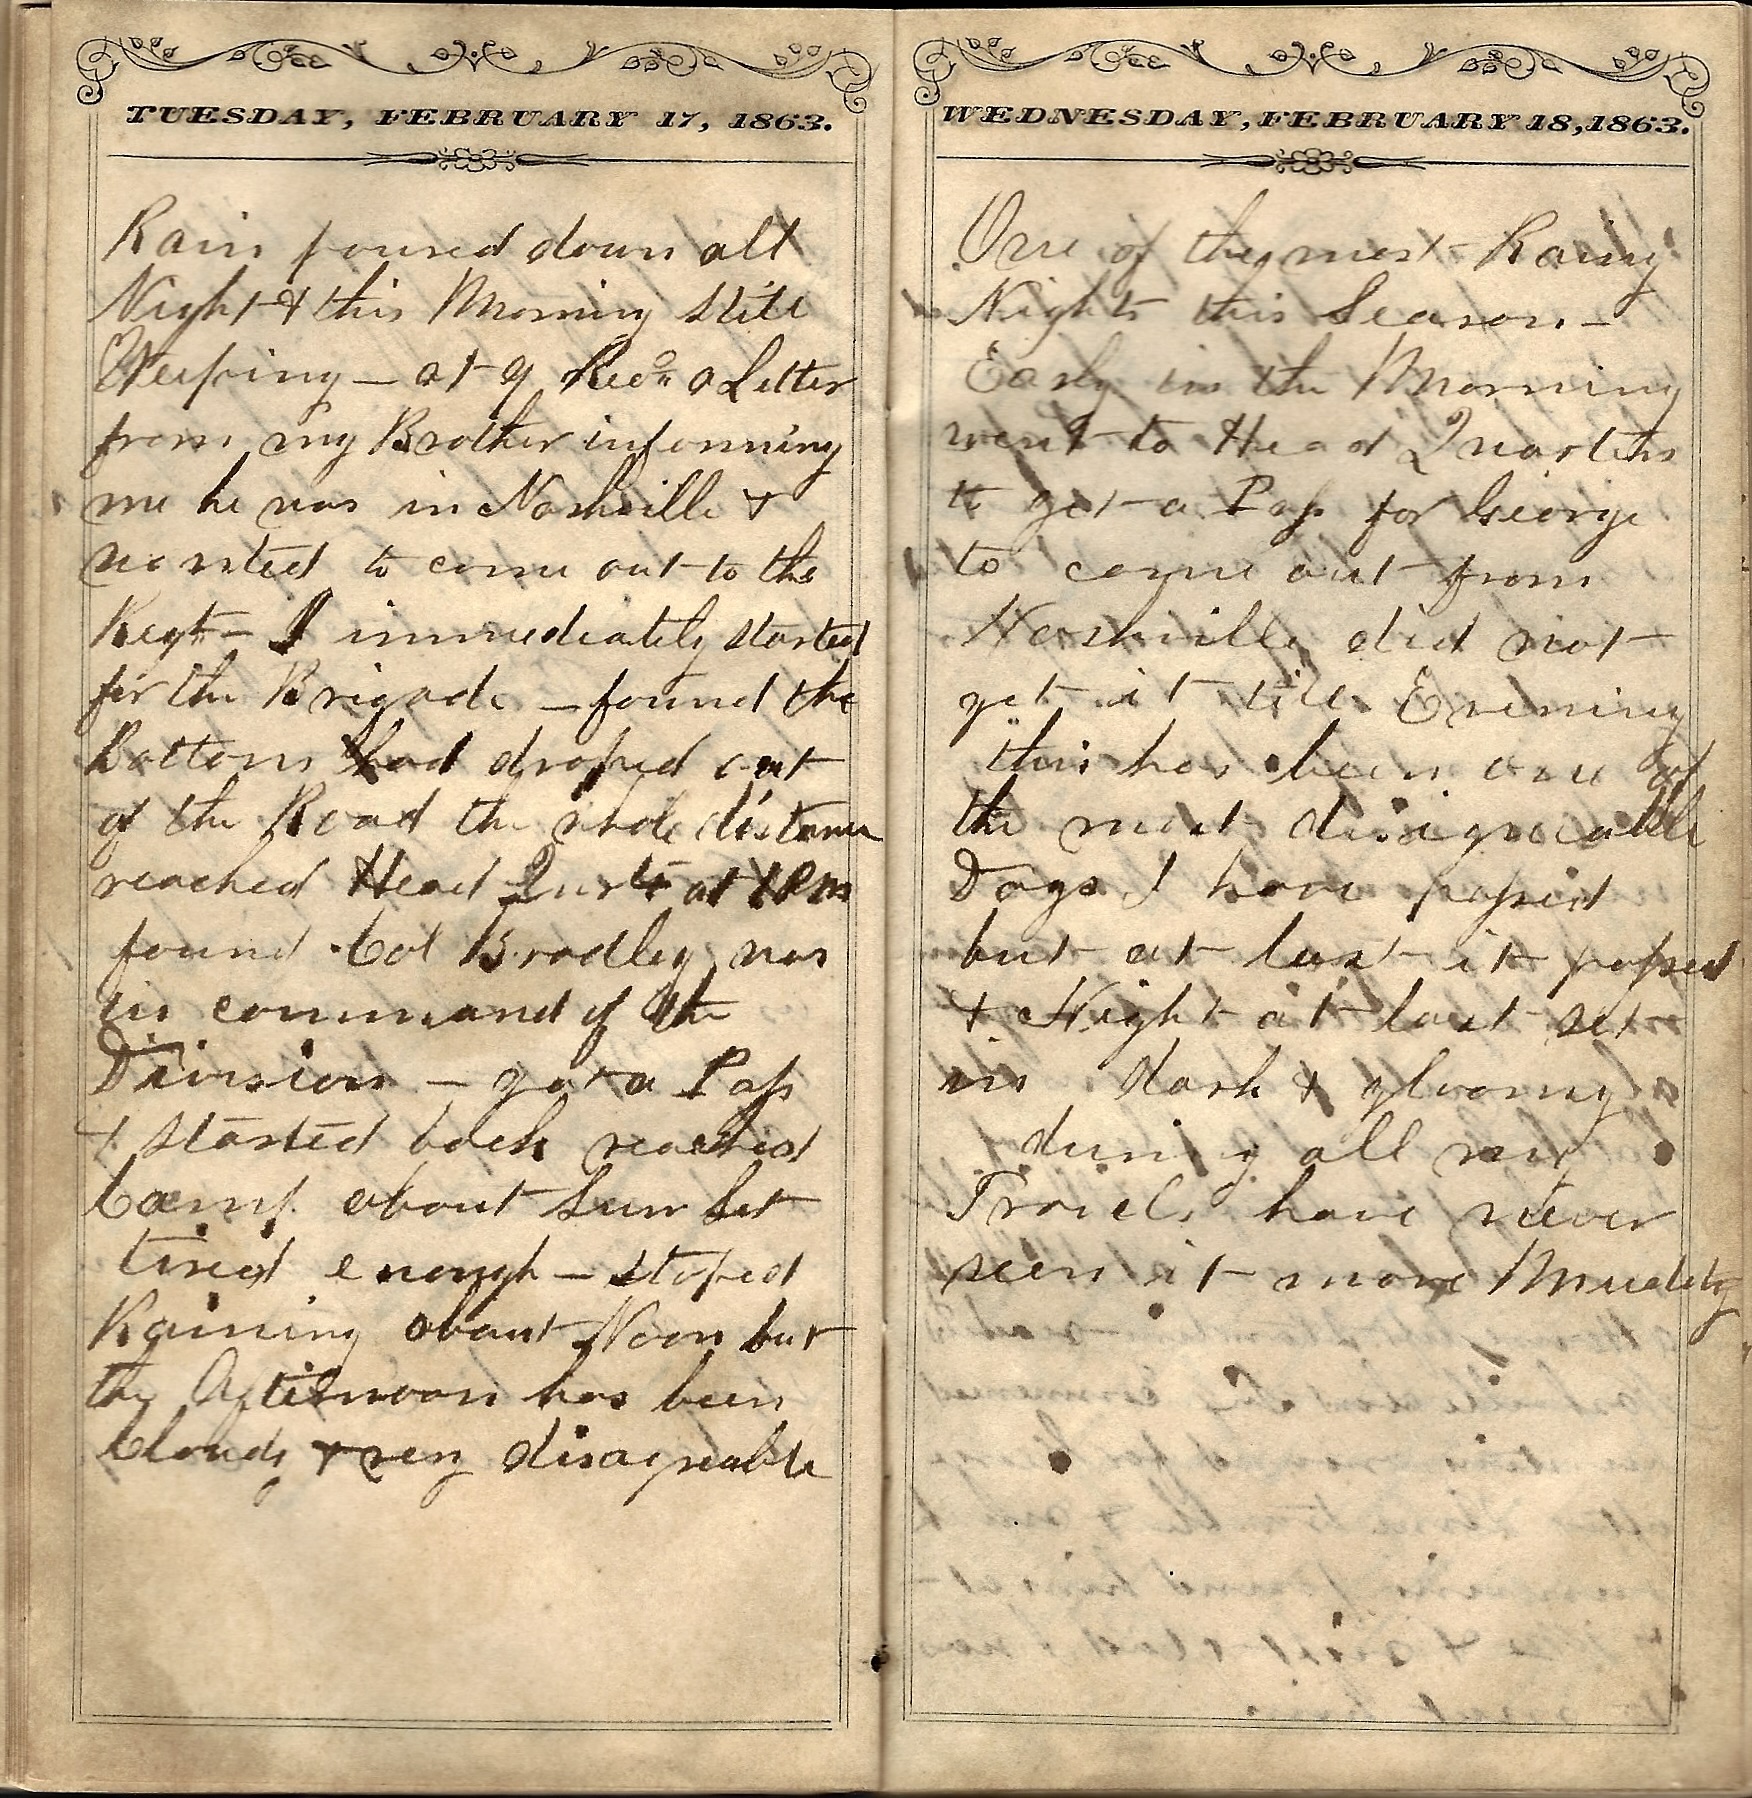 TUESDAY, FEBRUARY 17, 1863.
Rain poured down all
Night & this Morning still
Weeping — at 9 Recd a Letter
from my Brother informing
me he was in Nashville &
wanted to come out to the
Regt — I immediately started
for the Brigade — found the
Bottom had droped out
of the Road the whole distance
reached Head Qurts at 1 PM
found Col Bradley was
in command of the
Division — got a Pass
& started back reached
Camp about Sun Set
tired enough — stoped
Raining about Noon but
the Afternoon has been
Cloudy & very disagreable
WEDNESDAY, FEBRUARY 18, 1863.
One of the most Rainy
Nights this Season —
Early in the Morning
went to Head Quarters
to get a Pass for George
to come out from
Nashville did not
get it till Evening
this has been one of
the most disagreeable
Days I have passed
but at last it passed
& Night at last set
in dark & gloomy
during all my
Travels have never
seen it more Muddy